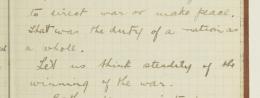 to direct war or make peace.
That was the duty of a nation as
a whole.
Let us think steadily of the
winning of the war.